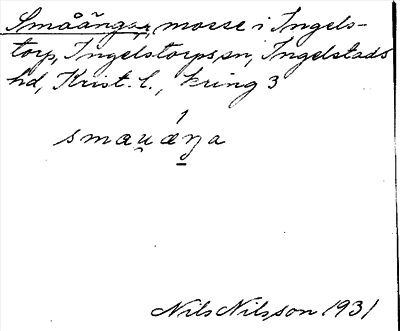 Småängar, mosse i Ingels-
torp, Ingelstorps sn, Ingelstads
hd, Krist. l., kring 3
1
smaṷæŋa
Nils Nilsson 1931